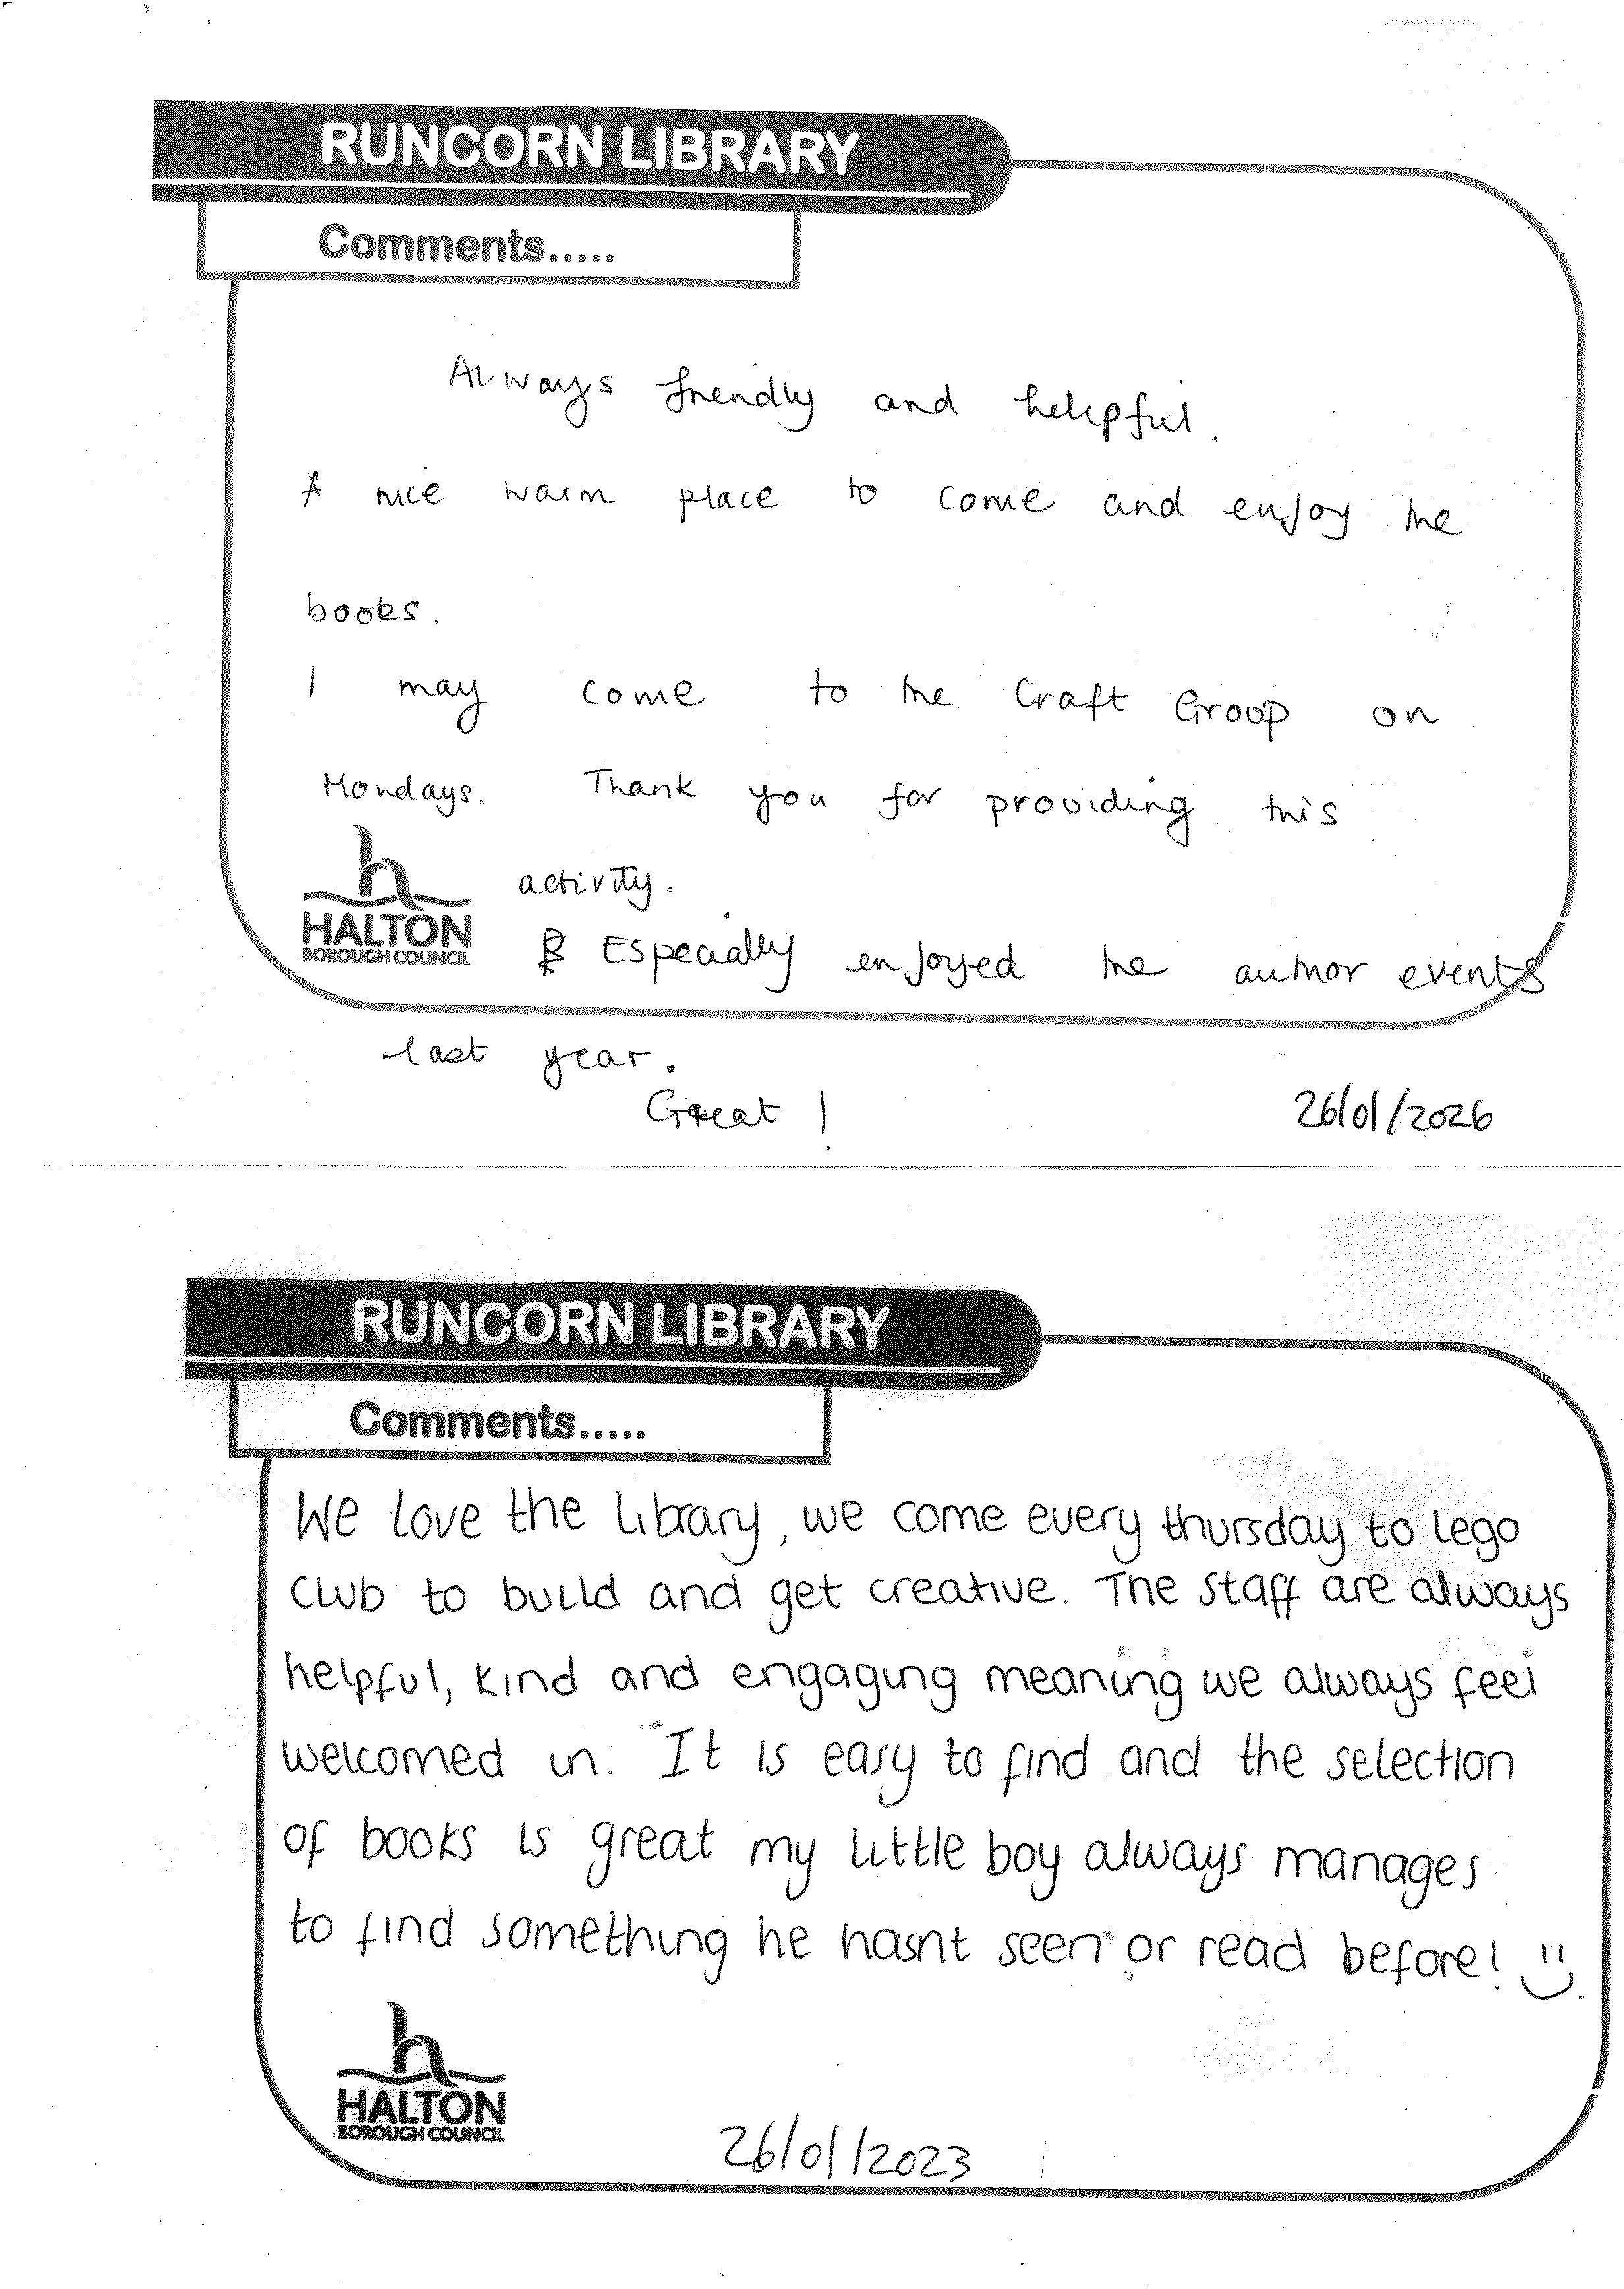 RUNCORN LIBRARY
Comments.....
Always friendly and helpful.
A nice warm place to come and enjoy the
books.
I may come to the Craft Group on
Mondays. Thank you for providing this
activity.
Especially enjoyed the author events
last year.
Great !
26/01/2026
HALTON
BOROUGH COUNCIL
RUNCORN LIBRARY
Comments.....
We love the library, we come every thursday to lego
club to build and get creative. The staff are always
helpful, kind and engaging meaning we always feel
welcomed in. It is easy to find and the selection
of books is great my little boy always manages
to find something he hasnt seen or read before! :)
HALTON
BOROUGH COUNCIL
26/01/2023